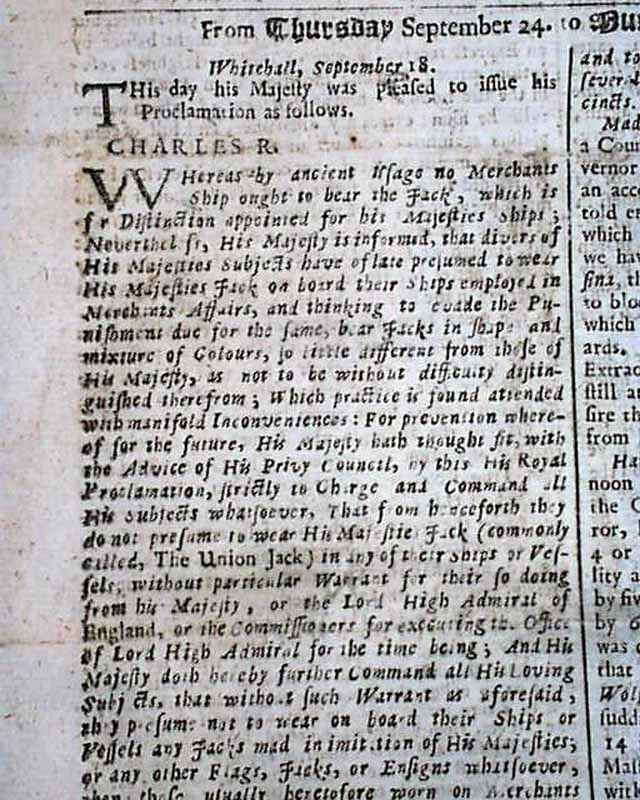 From Thursday September 24. to
Whitehall, September 18.
THis day his Majesty was pleased to issue his
Proclamation as follows.
CHARLES R.
WHereas by ancient Usage no Merchants
Ship ought to bear the Jack, which is
f r Distinction appointed for his Majesties Ships;
Neverthel ss, His Majesty is informed, that divers of
His Majesties Subjects have of late presumed to wear
His Majesties Jack on board their Ships employed in
Merchants Affairs, and thinking to evade the Pu-
nishment due for the same, bear Jacks in shape and
mixture of Colours, so little different from those of
His Majesty, as not to be without difficulty distin-
guished therefrom; Which practice is found attended
with manifold Inconveniences: For prevention where-
of for the future, His Majesty hath thought fit, with
the Advice of His Privy Council, by this His Royal
Proclamation, strictly to Charge and Command all
His Subjects whatsoever, That from henceforth they
do not presume to wear His Majesties Jack (commonly
called, The Union Jack) in any of their Ships or Ves-
sels, without particular Warrant for their so doing
from his Majesty, or the Lord High Admiral of
England, or the Commissioners for executing the Office
of Lord High Admiral for the time being; And His
Majesty doth hereby further Command all His Loving
Subj cts, that without such Warrant as aforesaid,
they presume not to wear on board their Ships or
Vessels any Jacks mad in imitation of His Majesties;
or any other Flags, Jacks, or Ensigns whatsoever,
than those usually heretofore worn on Merchants
and to
several
cincts.
Mad
a Coun
vernor
an acco
told
which
we hav
to blo
which
ards.
still a
sire th
from
Ha
noon
the C
ror,
4 or
lity a
by fiv
by 6
was
that
Wol
sudd
14
Mast
with